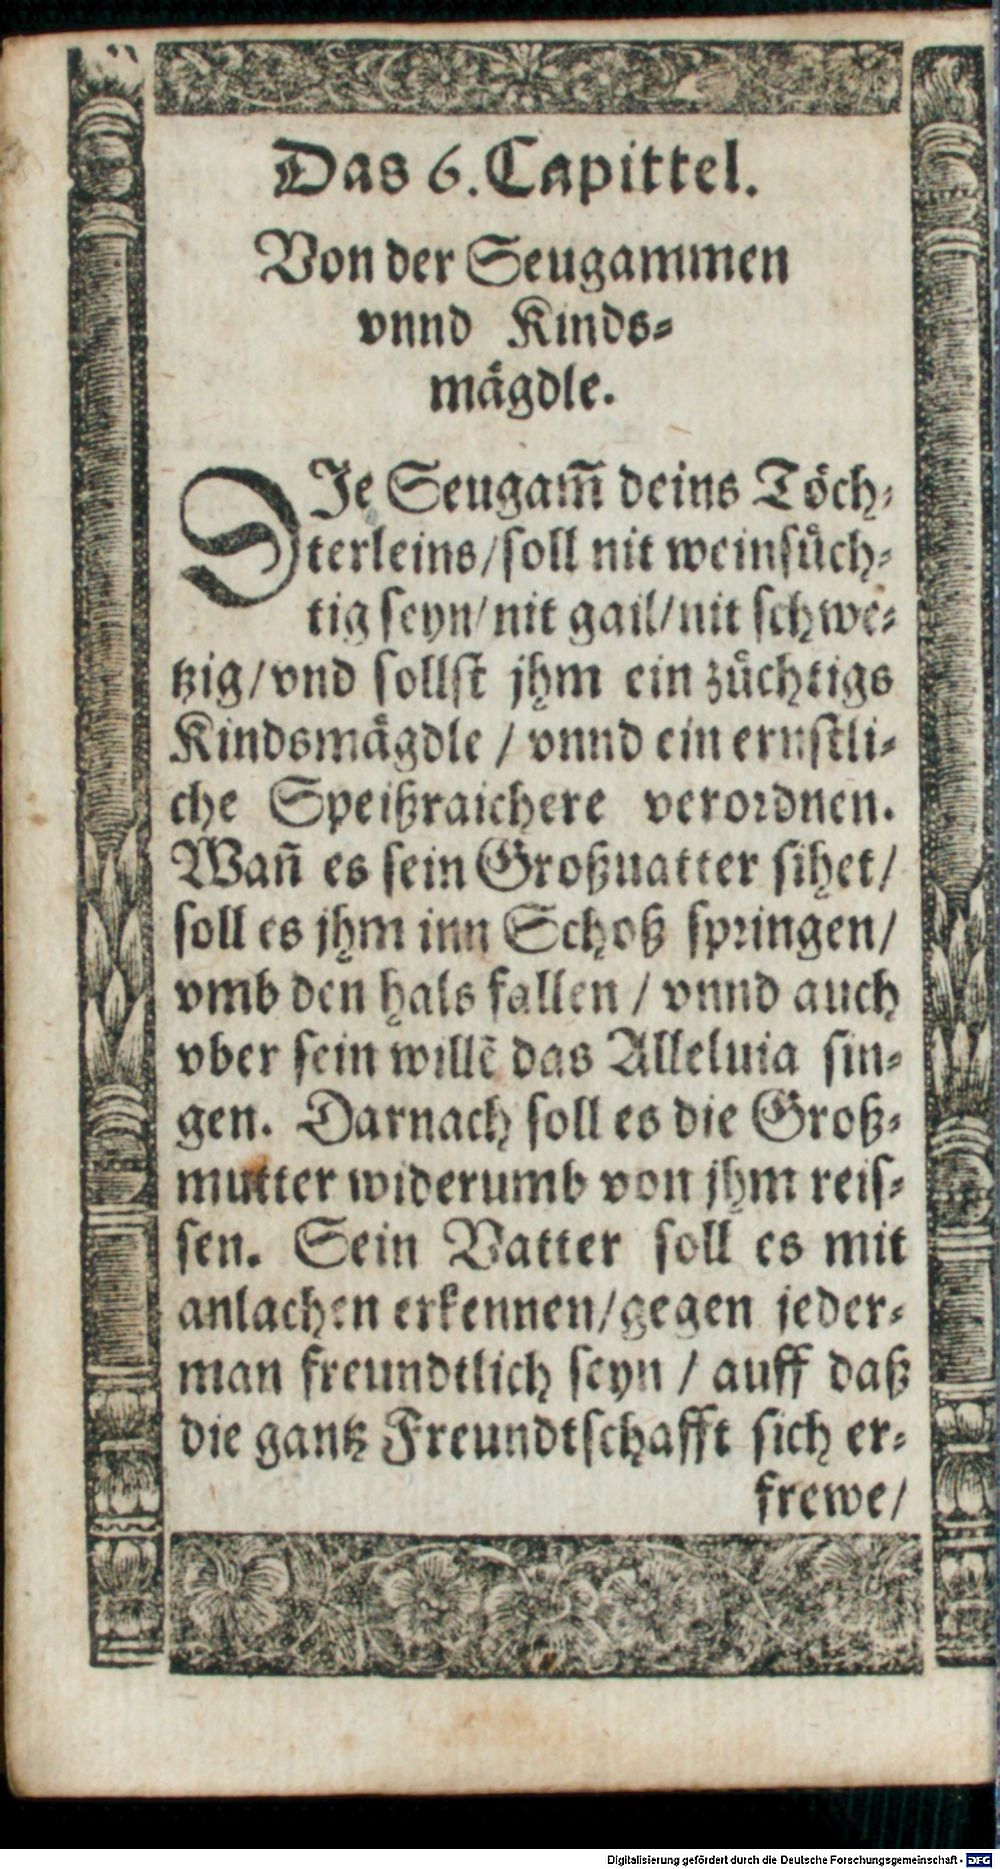 Das 6. Capittel.
Von der Seugammen
vnnd Kinds-
mägdle.
DJe Seugam̃ deins Töch-
terleins/soll nit weinsüch-
tig seyn/nit gail/nit schwe-
tzig/vnd sollst jhm ein züchtigs
Kindsmägdle / vnnd ein ernstli-
che Speißraichere verordnen.
Wañ es sein Großuatter sihet/
soll es jhm inn Schoß springen/
vmb den hals fallen / vnnd auch
vber sein willẽ das Alleluia sin-
gen. Darnach soll es die Groß-
mutter widerumb von jhm reis-
sen. Sein Vatter soll es mit
anlachen erkennen/gegen jeder-
man freundtlich seyn / auff daß
die gantz Freundtschafft sich er-
frewe/
Digitalisierung gefördert durch die Deutsche Forschungsgemeinschaft - DFG